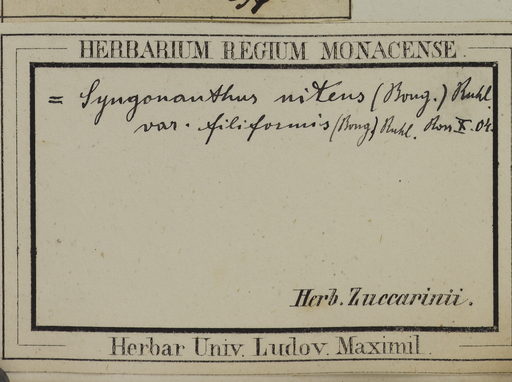 HERBARIUM REGIUM MONACENSE.
= Syngonanthus nitens (Bong.) Ruhl.
var. filiformis (Bong.) Ruhl. X. 04.
Herb. Zuccarinii.
Herbar Univ. Ludov. Maximil.